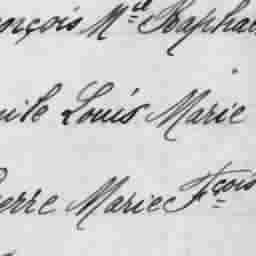 ençois Mle Raphae
uile Louis Marie
ierre Marie Fçois